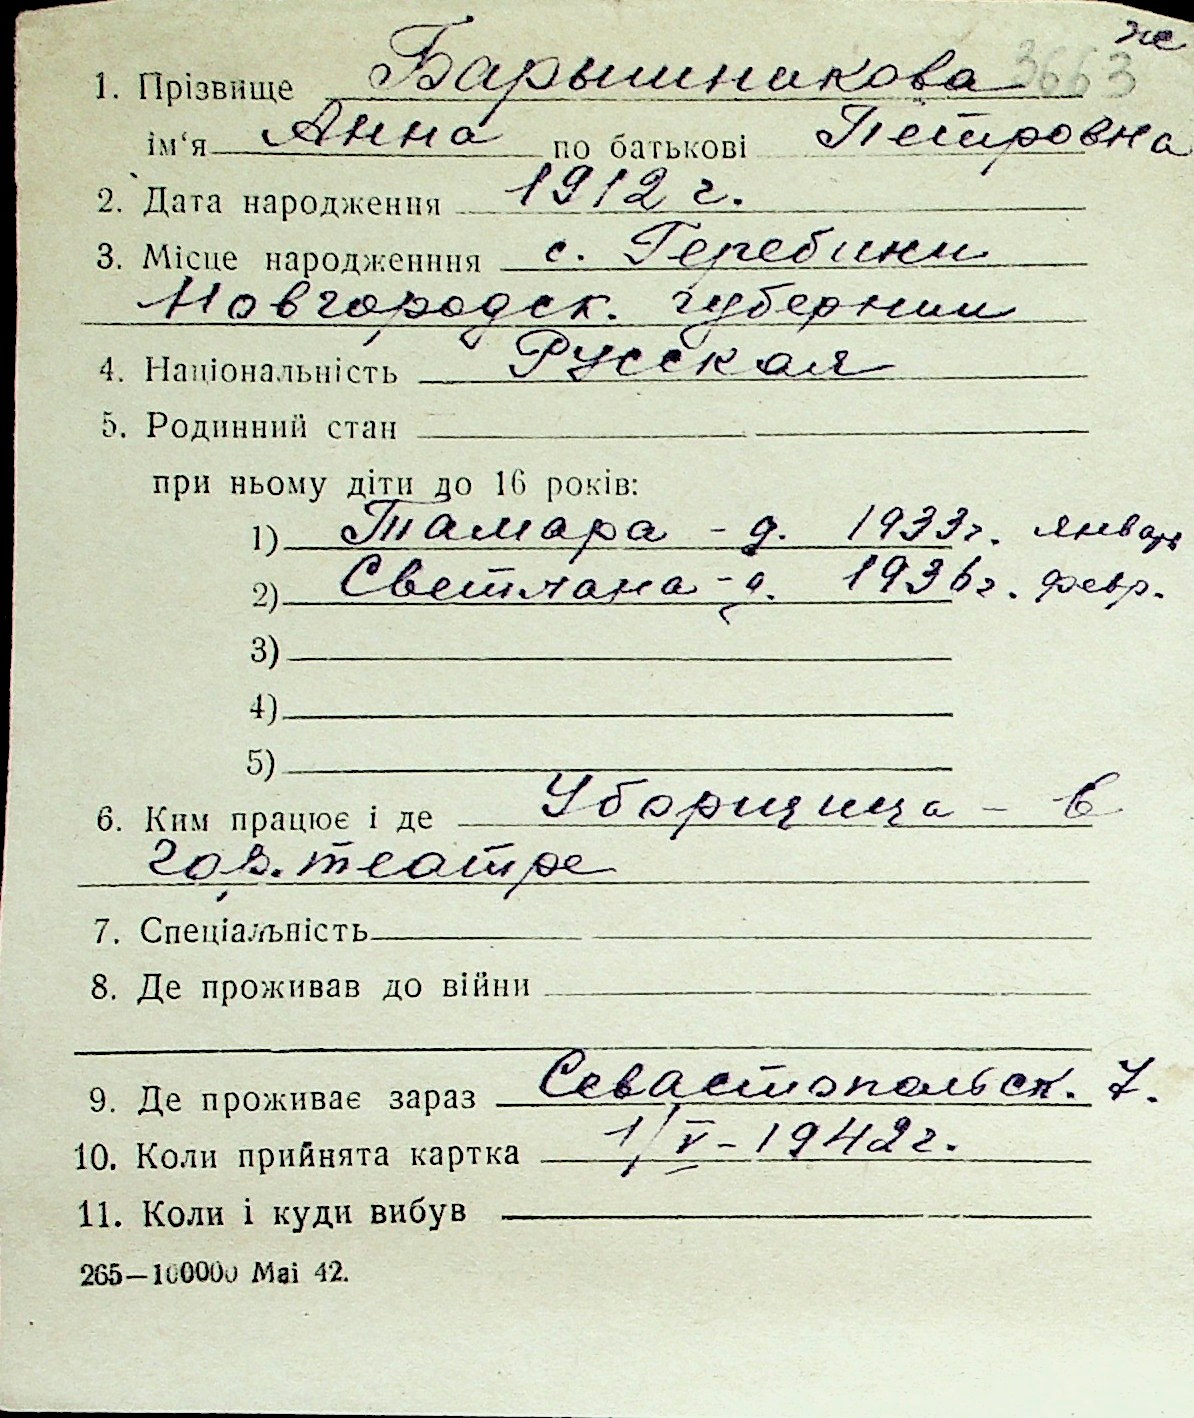 же
1. Прізвище Барышникова 3663
ім'я Анна по батькові Петровна
2. Дата народження 1912 г.
3. Місце народженння с. Теребини
Новгородск. губернии
4. Національність Русская
5. Родинний стан
при ньому діти до 16 років:
1) Тамара - д. 1933г. январь
2) Светлана - д. 1936г. февр.
3)
4)
5)
6. Ким працює і де Уборщица - в
гор. театре
7. Спеціальність
8. Де проживав до війни
9. Де проживає зараз Севастопольск. 7.
10. Коли прийнята картка 1/V - 1942г.
11. Коли і куди вибув
265—100000 Mai 42.